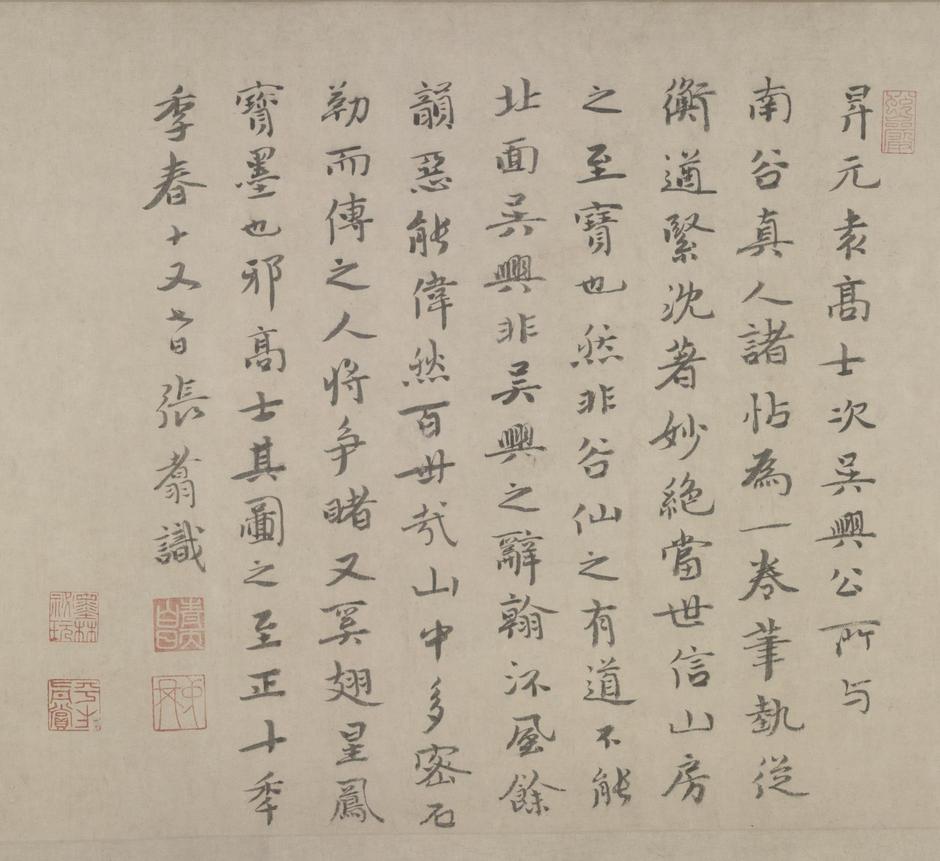 昇元袁髙士次吴興公所与
南谷真人諸帖為一卷筆埶從
衡遒緊沈著妙絶當世信山房
之至寶也然非谷仙之有道不能
北面吴興非吴興之辭翰流風餘
韻惡能偉然百世哉山中多密石
勒而傳之人将争睹又奚翅星鳳
寶墨也邪髙士其圖之至正十年
季春十又七日張翥識